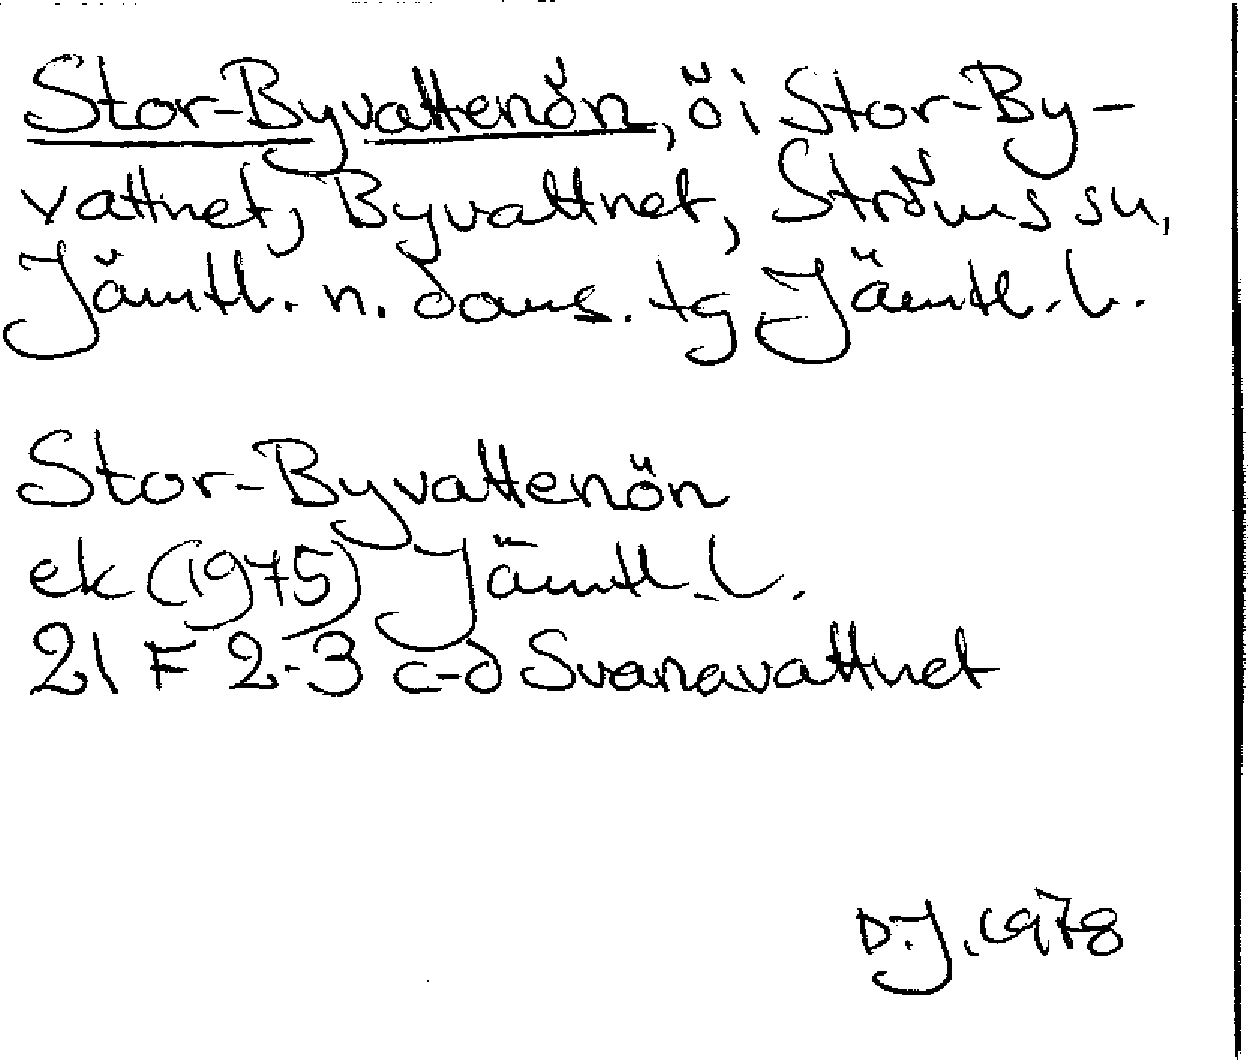 Stor-Byvattenön, ö i Stor-By-
vattnet, Byvattnet, Ströms sn,
Jämtl. n. doms. tg Jämtl. l.
Stor-Byvattenön
ek (1975) Jämtl. l.
21 F 2-3 c-d Svanavattnet
D.J. 1978